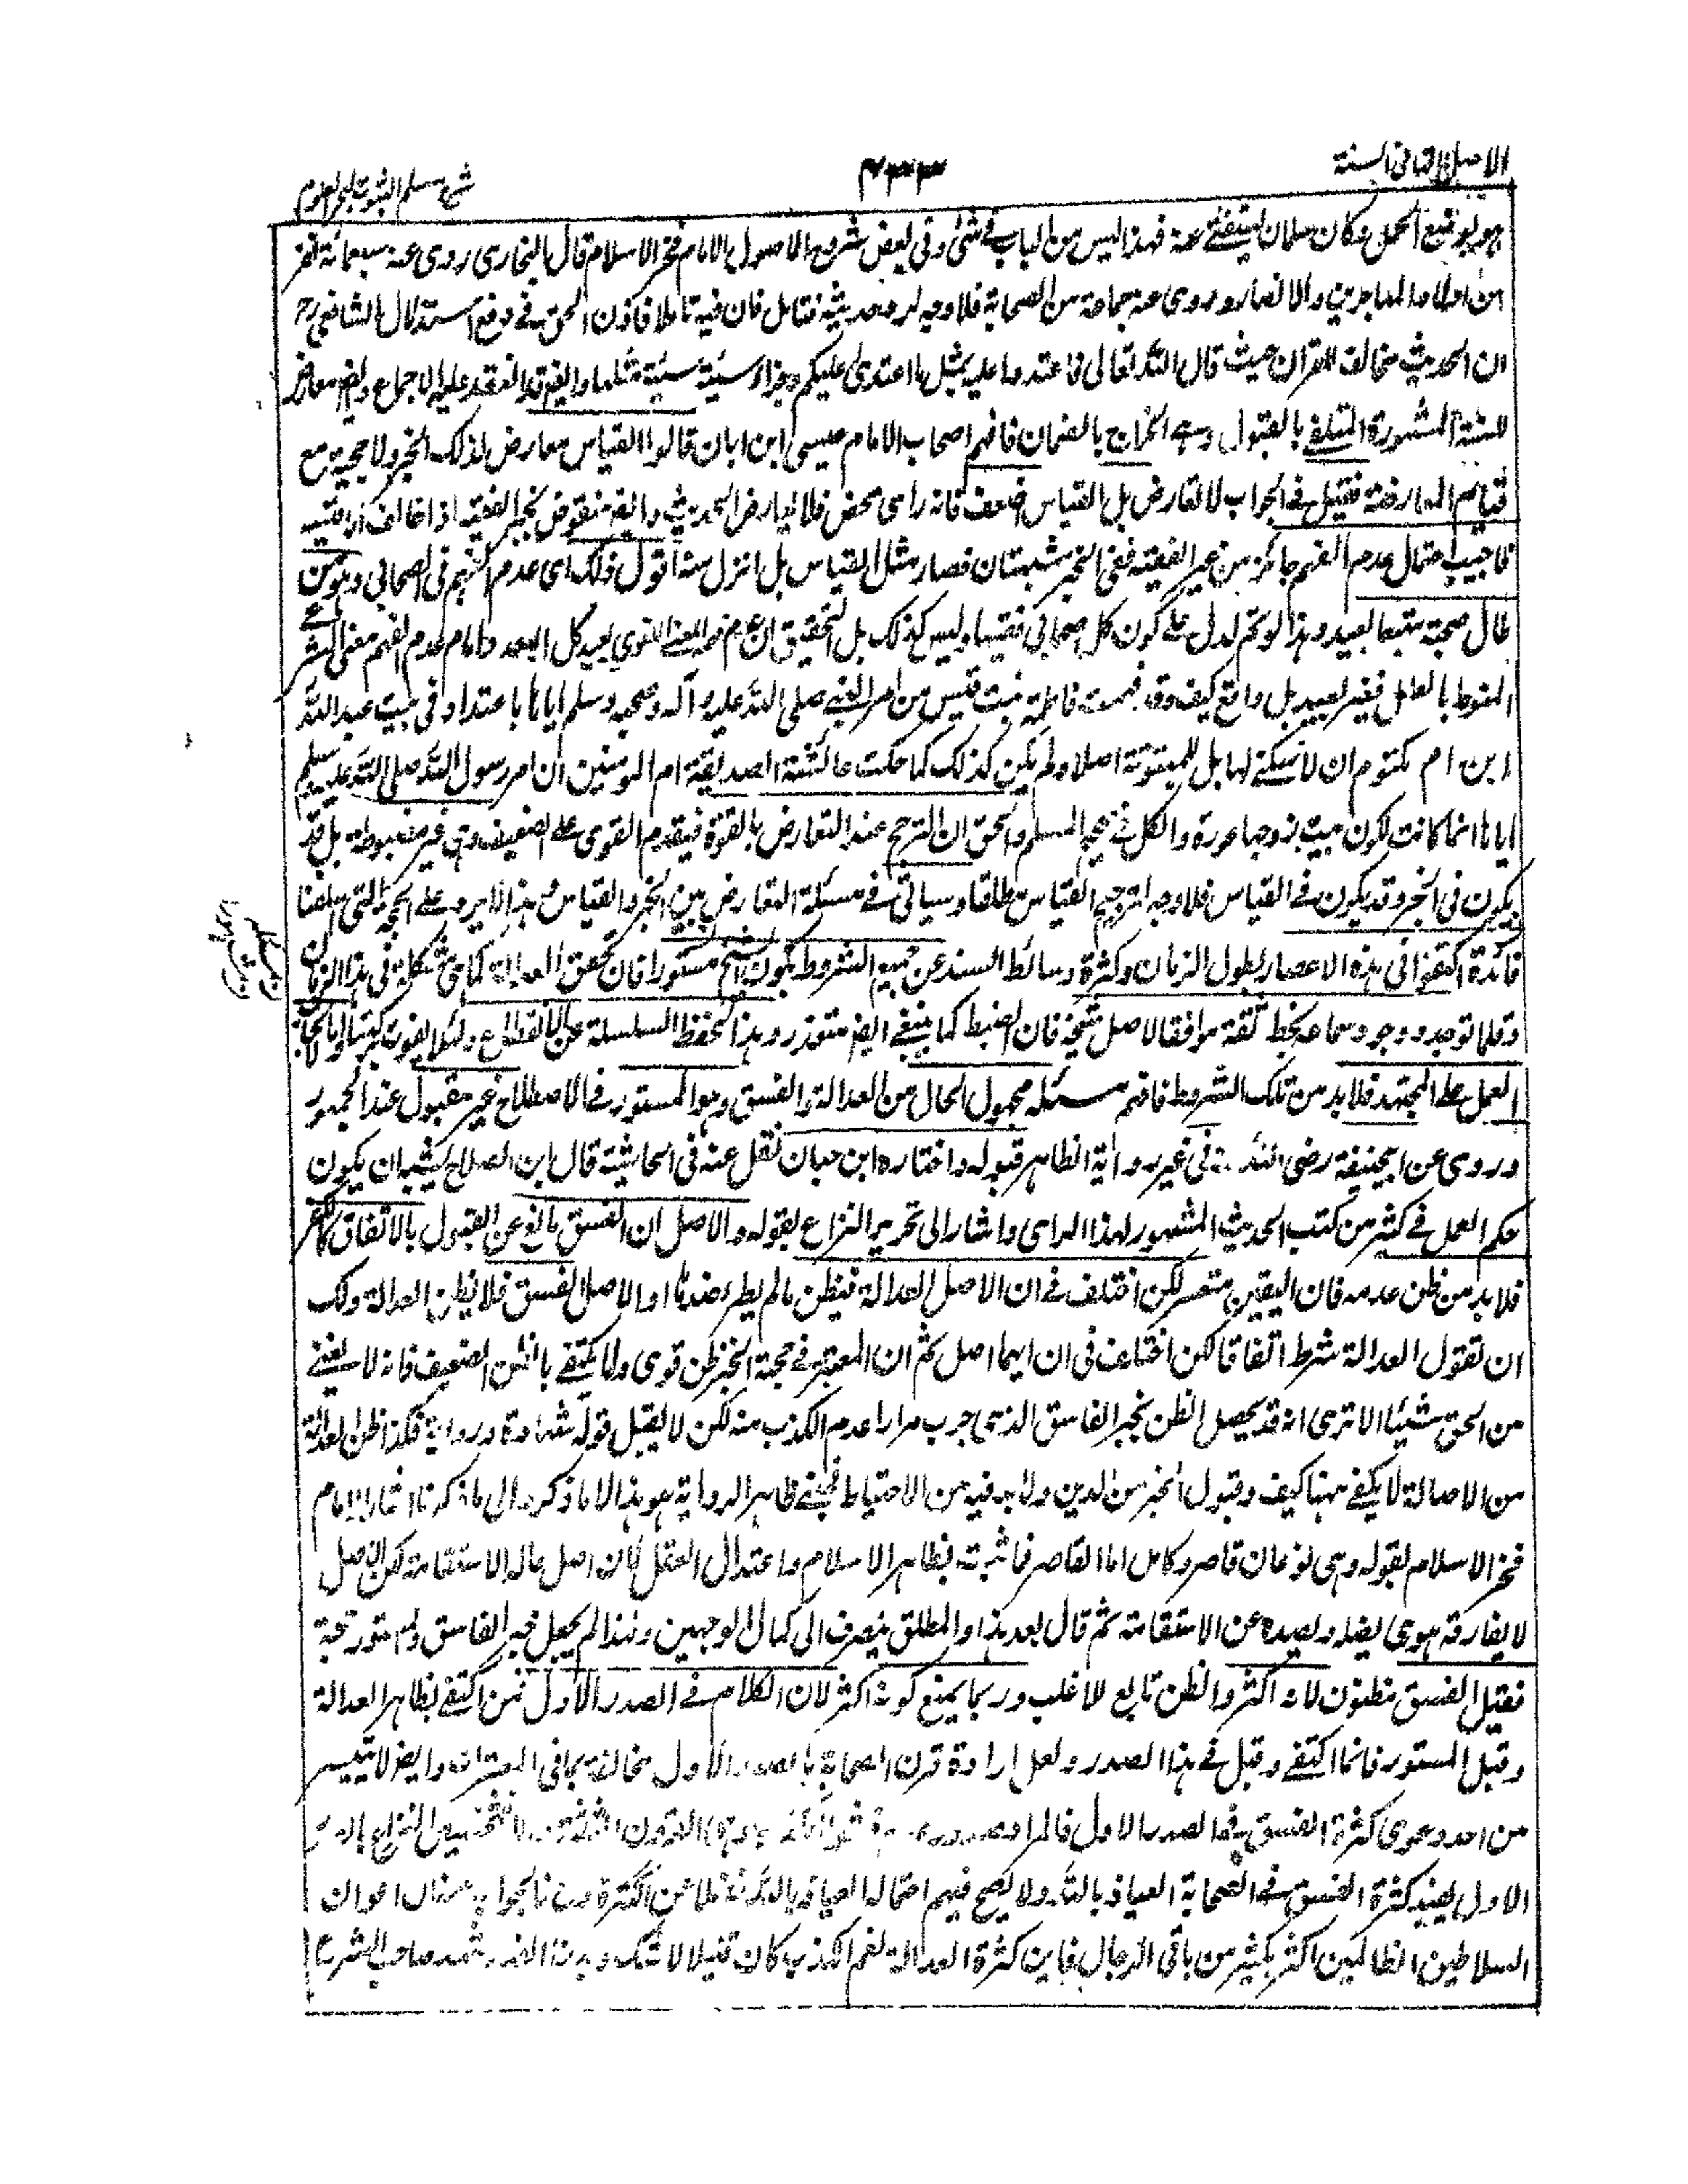 الاصل الثانی السنة
۴۳۳
شرح مسلم الثبوت لبحر العلوم
هریرة وکان سلمان یستفتی عنه فهذا لیس من الباب فی شئ وفی بعض شروح الاصول الامام فخر الاسلام قال البخاری روی عنه سبعمائة نفر
من اولاد المهاجرین والانصار وروی عنه جماعة من الصحابة فلا وجه لرد حدیثه فتامل فان فیه تاملا فاذن الحق فی دفع استدلال الشافعی رح
ان الحدیث مخالف للقران حیث قال الله تعالی فاعتدوا علیه بمثل ما اعتدی علیکم وجزاء سیئة سیئة مثلها وایضم قد انعقد علیه الاجماع وایضم معارض
للسنة المشهورة المتلقی بالقبول وهی الخراج بالضمان فافهم اصحاب الامام عیسی ابن ابان قالوا القیاس معارض لذلک الخبر ولا حجیة مع
قیام المعارضة فقیل فی الجواب لا تعارض بل القیاس اضعف فانه رای محض فلا یعارض الحدیث وایضم منقوض بخبر الفقیه اذا خالف الاقیسه
فاجیب احتمال عدم الفهم جائز من غیر الفقیه ففی الخبر شبهتان فصار مثل القیاس بل انزل منه اقول ذلک ای عدم الفهم فی الصحابی وهو من
طال صحبة متبعا بعید وهذا لو تم لدل علی کون کل صحابی فقیها ولیس کذلک بل التحقیق ان عدم فهم المعنی اللغوی بعید کل البعد واما عدم فهم معنی الشرعی
المنوط بالعلل فغیر بعید بل واقع کیف وقد فهمت فاطمة بنت قیس من امر النبی صلی الله علیه وآله وصحبه وسلم ایاها باعتداد فی بیت عبد الله
ابن ام مکتوم ان لا سکنی لها بل للمبتوتة اصلا ولم یکن کذلک کما حکت عائشة الصدیقة ام المومنین ان امر رسول الله صلی الله علیه وسلم
ایاها انما کانت لکون بیت زوجها عورة والکل فی صحیح المسلم والحق ان الترجیح عند التعارض بالقوة فیقدم القوی علی الضعیف وهی غیر مضبوطة بل قد
یکون فی الخبر وقد یکون فی القیاس فلا وجه لترجیح القیاس مطلقا وسیاتی فی مسئلة التعارض بین الخبر والقیاس هذا الایرد علی الحجة التی اسلفنا
فائدة اکتفوا فی هذه الاعصار لطول الزمان وکثرة وسائط السند عن جمیع الشروط بکون الشیخ مستورا فان تحقق العدالة کما هی مشکلة فی هذا الزمان
وقلما توجد ووجود سماعه بخط ثقة موافقا لاصل شیخه فان الضبط کما ینبغی ایضم متعذر وهذا لحفظ السلسلة عن الانقطاع
العمل علی المجتهد فلا بد من تلک الشروط فافهم مسئله مجهول الحال من العدالة والفسق وهو المستور فی الاصطلاح غیر مقبول عند الجمهور
وروی عن ابیحنیفة رضی الله عنه فی غیر روایة الظاهر قبوله واختاره ابن حبان نقل عنه فی الحاشیة قال ابن الصلاح یشبه ان یکون
حکم العمل فی کثیر من کتب الحدیث المشهور لهذا الرای واشار الی تحریر النزاع بقوله والاصل ان الفسق مانع عن القبول بالاتفاق کالکفر
فلا بد من ظن عدمه فان الیقین متعسر لکن اختلف فی ان الاصل العدالة فیظن مالم یطرء ضدها او الاصل الفسق فلا یظن العدالة ولک
ان تقول العدالة شرط اتفاقا لکن اختلف فی ان ایهما اصل ثم ان المعتبر فی حجیة الخبر ظن قوی ولا یکتفی بالظن الضعیف فانه لا یغنی
من الحق شیئا الا تری انه قد یحصل الظن بخبر الفاسق الذی جرب مرارا عدم الکذب منه لکن لا یقبل قوله شهادة وروایة فکذا ظن العدالة
من الاصالة لا یکفی ههنا کیف وقبول الخبر من الدین ولا بد فیه من الاحتیاط فمبنی ظاهر الروایة هو هذا لا ما ذکره والی ما ذکرنا اشار الامام
فخر الاسلام بقوله وهی نوعان قاصر وکامل اما القاصر فما ثبت بظاهر الاسلام واعتدال العقل لان اصل حاله الاستقامة لکن الاصل
لا یفارقه هوی یضله ویصده عن الاستقامة ثم قال بعد هذا والمطلق ینصرف الی کمال الوجهین ولهذا لم یجعل خبر الفاسق والمستور حجة
فقیل الفسق مظنون لانه اکثر والظن تابع للاغلب وربما یمنع کونه اکثر لان الکلام فی الصدر الاول فمن اکتفی بظاهر العدالة
وقبل المستور فانما اکتفی وقبل فی هذا الصدر ولعل ارادة قرن الصحابة بالصدر الاول مخالفة بما فی المعتبرات وایضم لا تتیسر
من احد دعوی کثرة الفسق فی الصدر الاول فالمراد
الاول یفید کثرة الفسق فی الصحابة العیاذ بالله ولا یصح فیهم احتمال العیاذ بالله فضلا عن الکثرة
السلاطین الظالمین اکثر بکثیر من باقی الرجال فاین کثرة العدالة نعم الکذب کان قلیلا لا شک